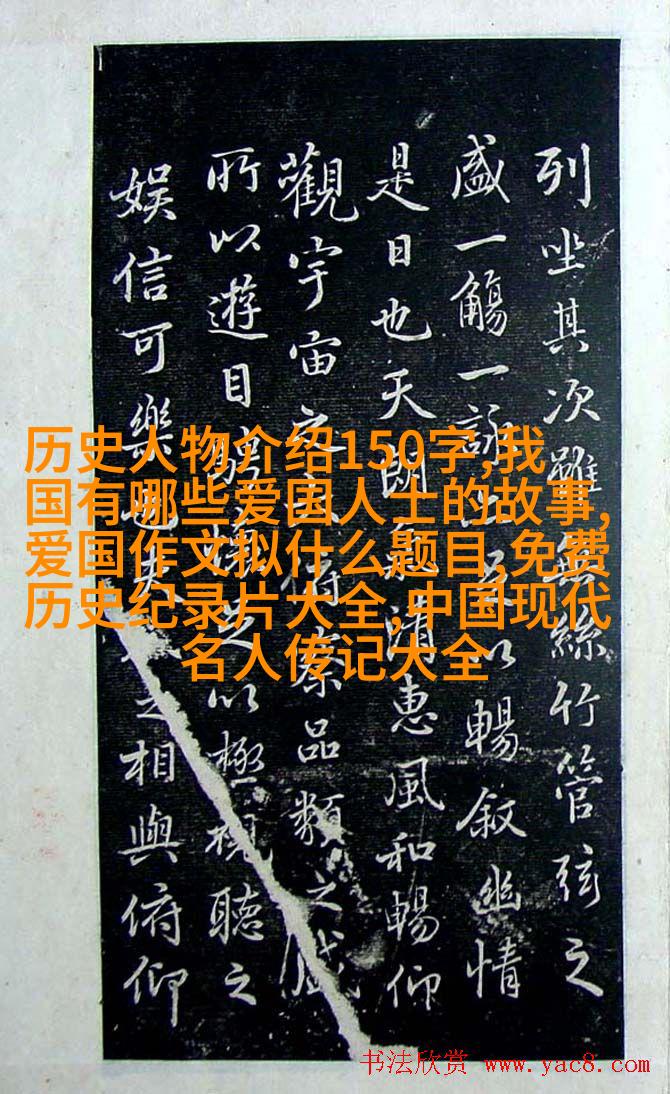 列坐其次雖無絲竹管弦之
盛一觴一詠亦足以暢叙幽情
是日也天朗氣清惠風和暢仰
觀宇宙之大俯察品類之盛
所以遊目騁懷足以極視聽之
娛信可樂也夫人之相與俯仰
历史人物介绍150字,我
国有哪些爱国人士的故事,
爱国作文拟什么题目,免费
历史纪录片大全,中国现代
名人传记大全
书法欣赏 www.yac8.com